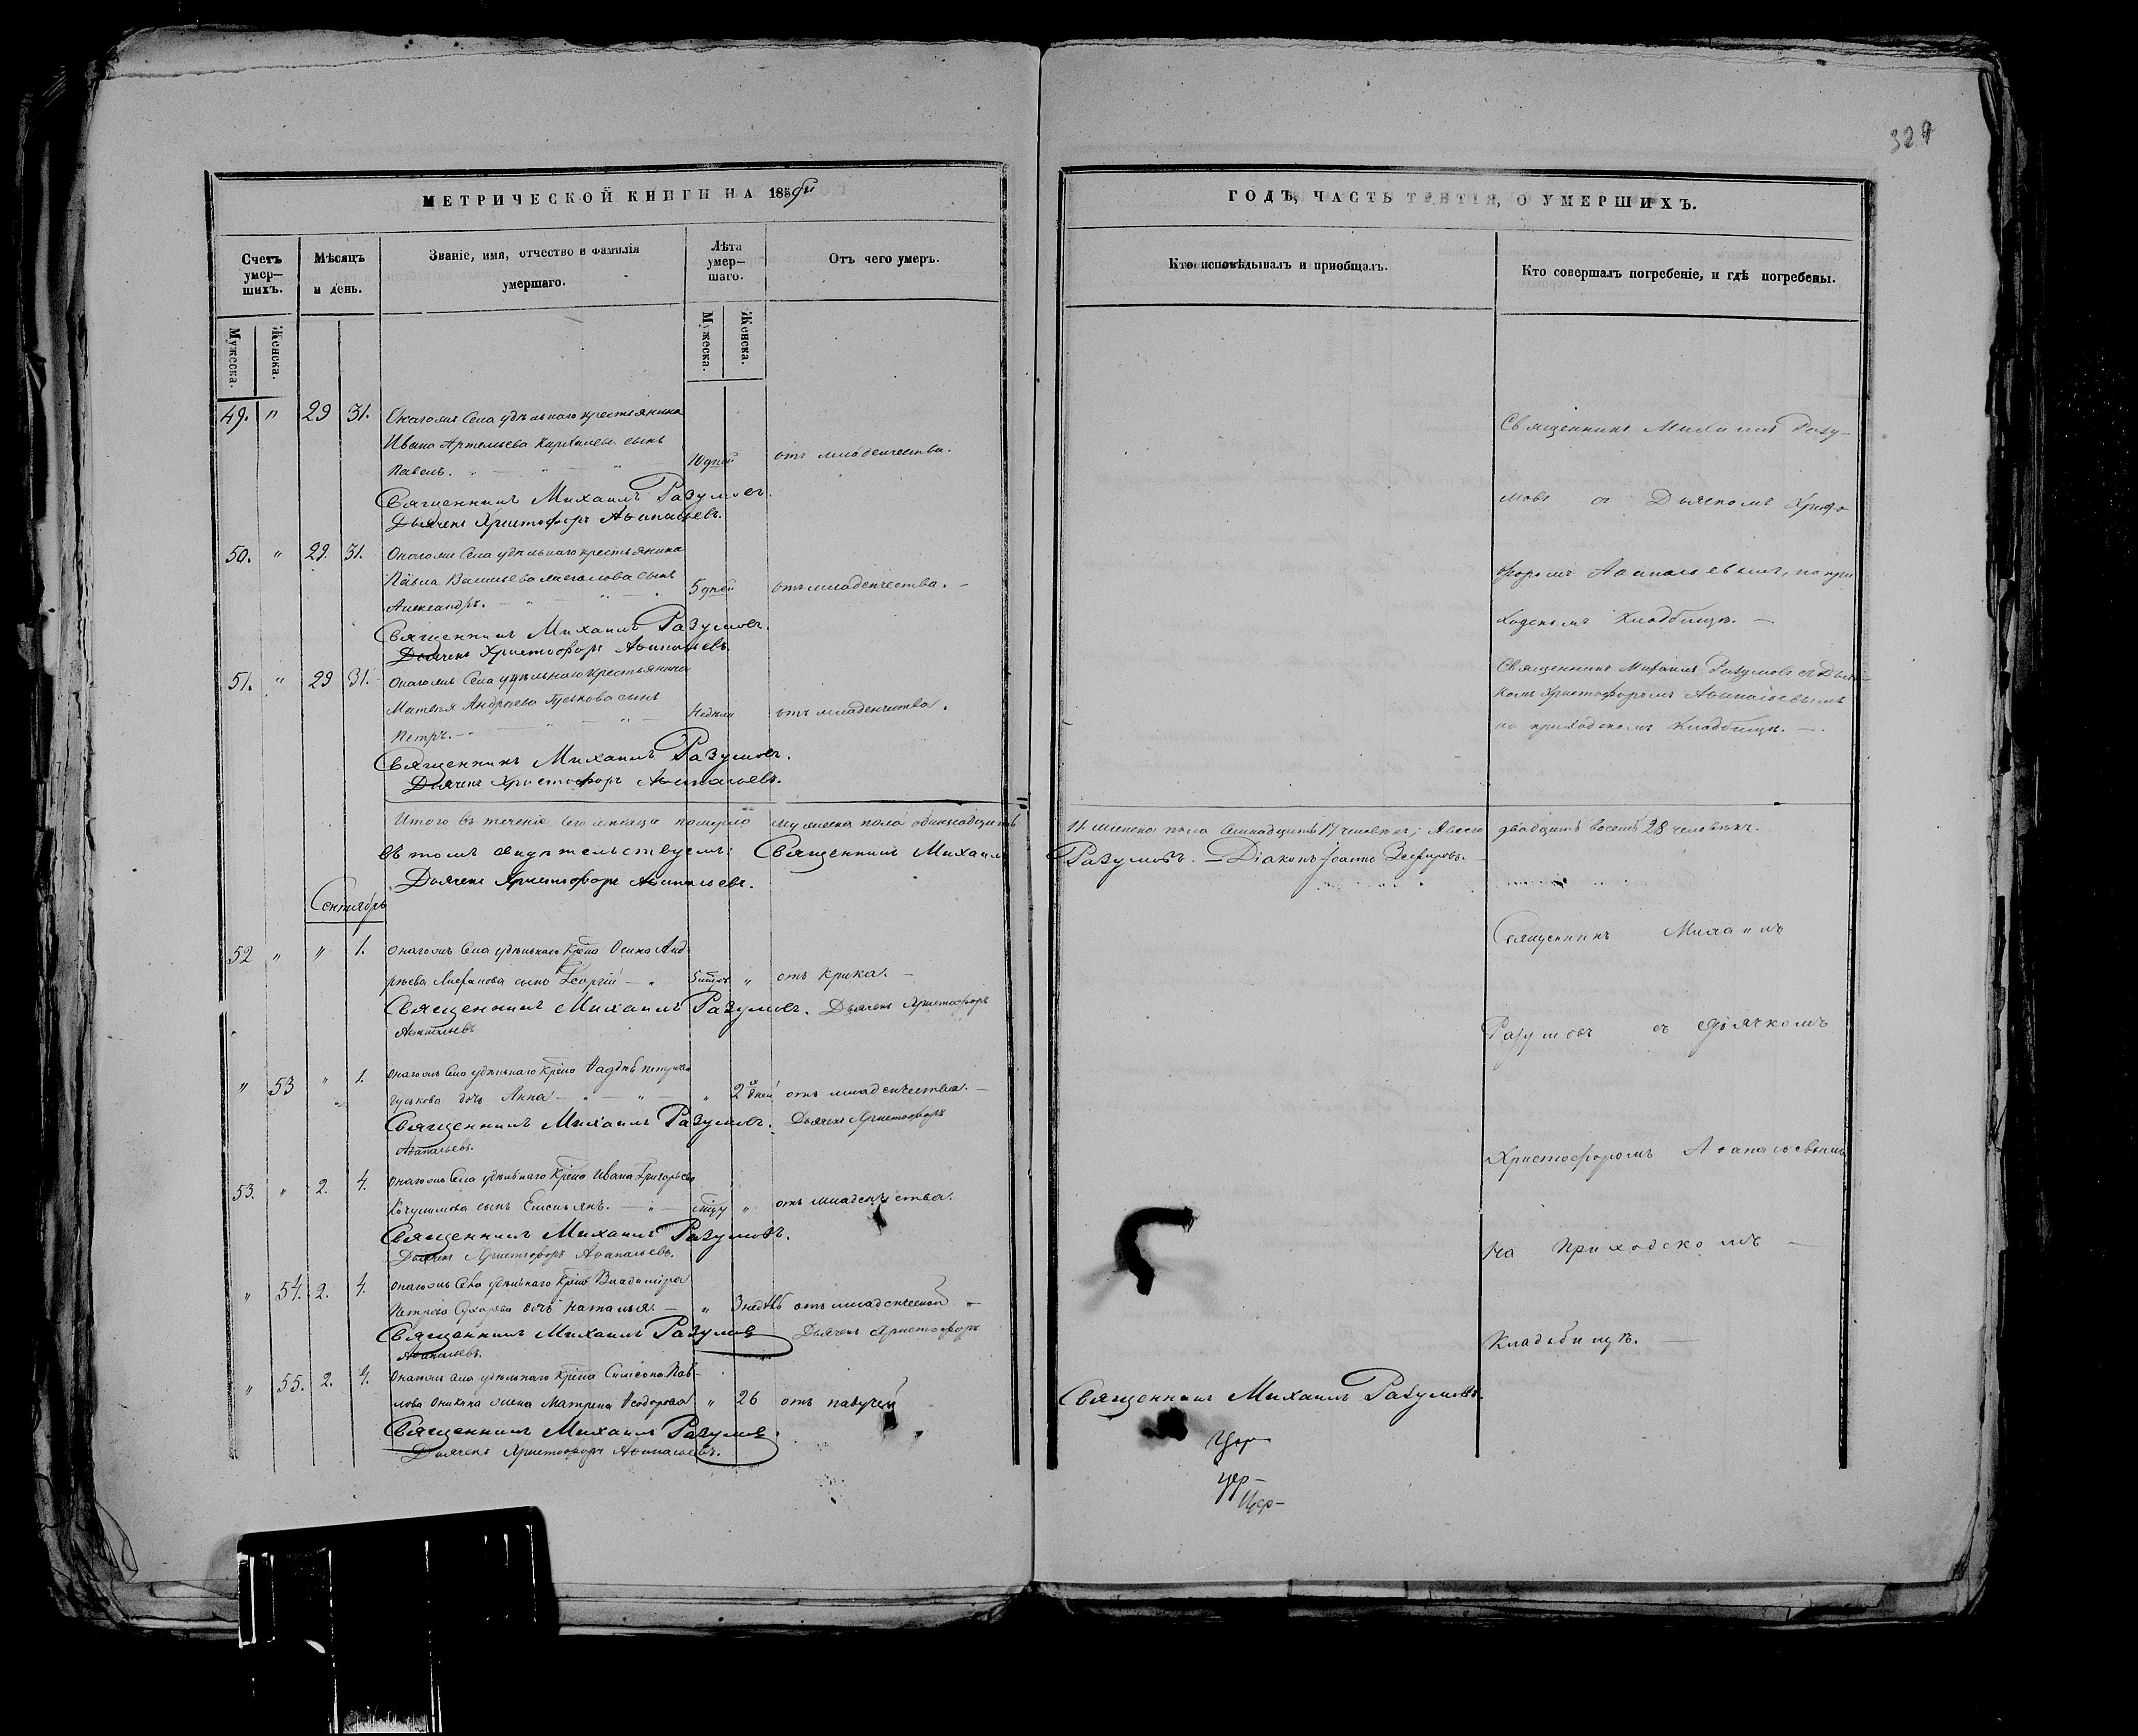 324
МЕТРИЧЕСКОЙ КНИГИ НА 185
ГОДЪ, ЧАСТЬ ТРЕТІЯ, О УМЕРШИХЪ.
Счетъ умер-шихъ.
Мѣсяцъ и день.
Званіе, имя, отчество и фамилія умершаго.
Лѣта умер-шаго.
Отъ чего умеръ.
Кто исповѣдывалъ и пріобщалъ.
Кто совершалъ погребеніе, и гдѣ погребены.
Мужеска.
Женска.
Мужеска.
Женска.
49. " 29 31. Онагожъ Села удѣльнаго крестьянина
Ивана Артемьева сынъ
Павелъ. 10 дней отъ младенчества.
Священникъ Михаилъ Разумовъ.
Дьячекъ Христофоръ Аѳанасьевъ.
Священникъ Михаилъ Разу-
мовъ съ Дьячкомъ Христо
форомъ Аѳанасьевымъ, на при
ходскомъ Кладбищѣ. —
50. " 29. 31. Онагоже Села удѣльнаго крестьянина
Павла Васильева сынъ
Александръ. 5 дней отъ младенчества. —
Священникъ Михаилъ Разумовъ.
Дьячекъ Христофоръ Аѳанасьевъ.
51. " 29 31. Онагожъ Села удѣльнаго крестьянина
Матвѣя Андреева Гуськова сынъ
Петръ. — недѣли отъ младенчества.
Священникъ Михаилъ Разумовъ.
Дьячекъ Христофоръ Аѳанасьевъ.
Священникъ Михаилъ Разумовъ съ Дьяч-
комъ Христофоромъ Аѳанасьевымъ
на приходскомъ Кладбищѣ. —
Итого въ теченіе сего мѣсяца померло мужеска пола одинадцать
11 женска пола семнадцать 17 человѣкъ; А всего двадцать восемь 28 человѣкъ.
Въ томъ свидѣтельствуемъ: Священникъ Михаилъ
Разумовъ. — Діаконъ Іоаннъ Зефировъ.
Дьячекъ Христофоръ Аѳанасьевъ.
Сентябрь
52 " " 1. Онагожъ Села удѣльнаго Осипа Анд-
рѣева сынъ Георгій — " отъ крика. —
Священникъ Михаилъ Разумовъ. Дьячекъ Христофоръ
Аѳанасьевъ
" 53 " 1. Онагожъ Села удѣльнаго Петрова
Гуськова дочь Анна — " 2 дней отъ младенчества. —
Священникъ Михаилъ Разумовъ. Дьячекъ Христофоръ
Аѳанасьевъ.
53. " 2. 4. Онагожъ Села удѣльнаго Ивана Григорьева
сынъ Емельянъ. — " отъ младенчества.
Священникъ Михаилъ Разумовъ.
Дьячекъ Христофоръ Аѳанасьевъ.
" 54. 2. 4. Онагожъ Села удѣльнаго Владиміра
Петрова дочь Наталья. — " 3 недѣль отъ
Священникъ Михаилъ Разумовъ Дьячекъ Христофоръ
Аѳанасьевъ.
" 55. 2. 4. Онагожъ Села удѣльнаго Симеона Пав-
лова жена Матрена Ѳеодорова " 26 отъ
Священникъ Михаилъ Разумовъ.
Дьячекъ Христофоръ Аѳанасьевъ.
Священникъ Михаилъ
Разумовъ съ Дьячкомъ
Христофоромъ Аѳанасьевымъ
на Приходскомъ —
Кладбищѣ. —
Священникъ Михаилъ Разумовъ.
Цер-
цер-
Цер-